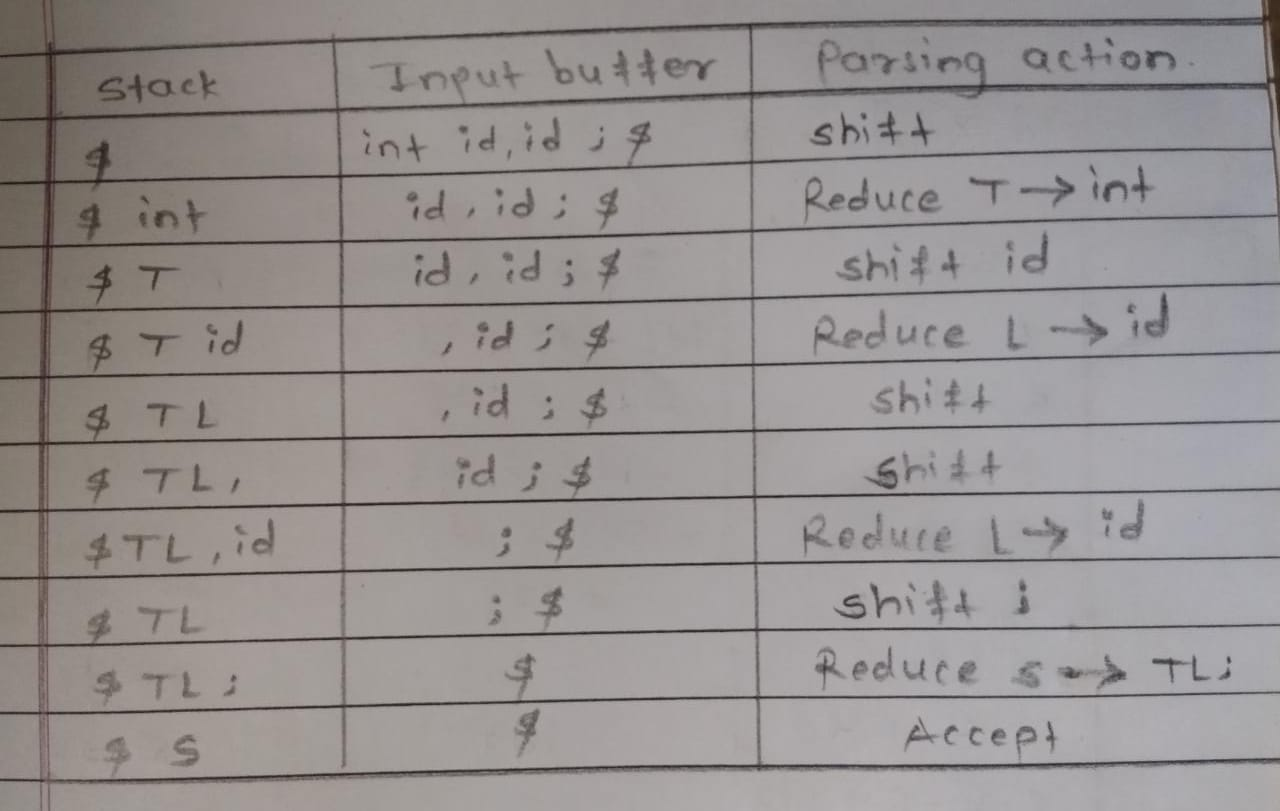 Stack Input buffer Parsing action.
$ int id, id ; $ shift
$ int id, id ; $ Reduce T → int
$ T id, id ; $ shift id
$ T id , id ; $ Reduce L → id
$ TL , id ; $ shift
$ TL, id ; $ shift
$ TL, id ; $ Reduce L → id
$ TL ; $ shift ;
$ TL ; $ Reduce S → TL;
$ S $ Accept